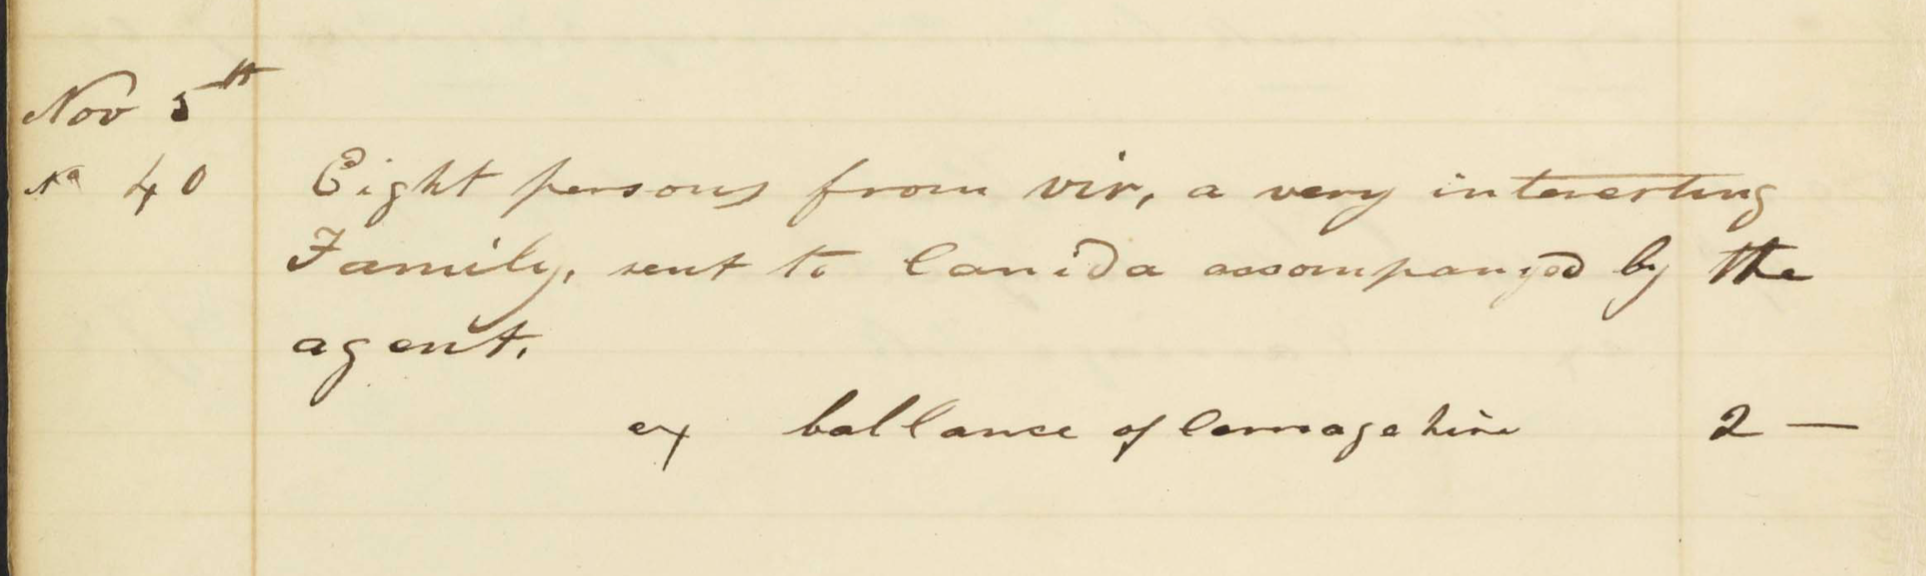 Nov 5th
No 40 Eight persons from vir, a very interesting
Family, sent to Canida accompanyed by the
agent.
ex ballance of Carrage hire 2 —